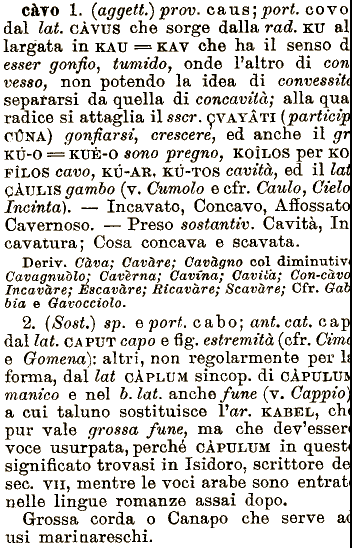 càvo 1. (aggett.) prov. caus; port. covo
dal lat. CÀVUS che sorge dalla rad. KU al
largata in KAU = KAV che ha il senso d
esser gonfio, tumido, onde l'altro di con
vesso, non potendo la idea di convessità
separarsi da quella di concavità; alla qua
radice si attaglia il sscr. ÇVAYÂTI (particip
ÇÛNA) gonfiarsi, crescere, ed anche il gr
KÚ-O = KUÈ-O sono pregno, KOÎLOS per KO
FÌLOS cavo, KÚ-AR, KÚ-TOS cavità, ed il lat
ÇÀULIS gambo (v. Cumolo e cfr. Caulo, Cielo
Incinta). — Incavato, Concavo, Affossato
Cavernoso. — Preso sostantiv. Cavità, In
cavatura; Cosa concava e scavata.
Deriv. Càva; Cavàre; Cavàgno col diminutiv
Cavagnuòlo; Cavèrna; Cavìna; Cavità; Con-càvo
Incavàre; Escavàre; Ricavàre; Scavàre; Cfr. Gab
bia e Gavocciolo.
2. (Sost.) sp. e port. cabo; ant. cat. cap
dal lat. CAPUT capo e fig. estremità (cfr. Cima
e Gomena): altri, non regolarmente per la
forma, dal lat CÀPLUM sincop. di CÀPULUM
manico e nel b. lat. anche fune (v. Cappio)
a cui taluno sostituisce l'ar. KABEL, ch
pur vale grossa fune, ma che dev'esser
voce usurpata, perché CÀPULUM in quest
significato trovasi in Isidoro, scrittore de
sec. VII, mentre le voci arabe sono entrat
nelle lingue romanze assai dopo.
Grossa corda o Canapo che serve a
usi marinareschi.